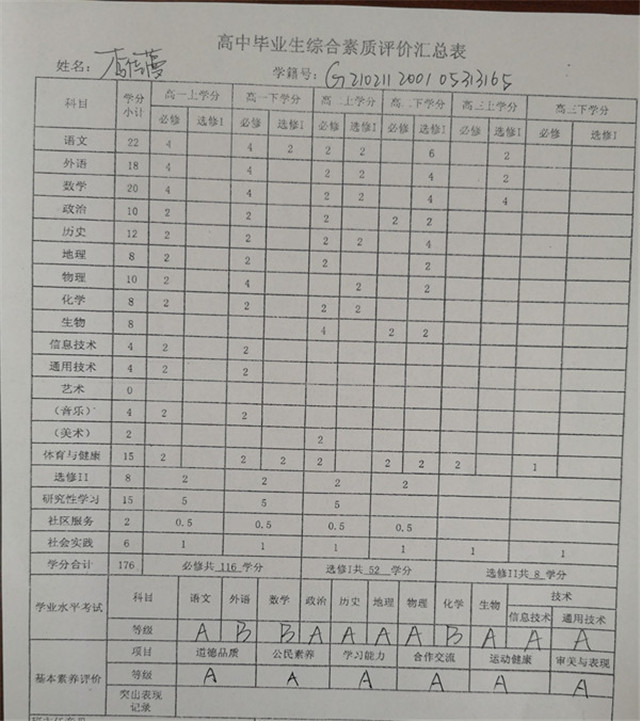 高中毕业生综合素质评价汇总表
姓名： 学籍号：G210211200105313165
科目 学分小计 高一上学分 高一下学分 高二上学分 高二下学分 高三上学分 高三下学分
必修 选修I 必修 选修I 必修 选修I 必修 选修I 必修 选修I 必修 选修I
语文 22 4 4 2 2 2 6 2
外语 18 4 4 2 2 4 2
数学 20 4 4 2 2 4 4
政治 10 2 2 2 2 2
历史 12 2 2 2 2 4
地理 8 2 2 2 2
物理 10 2 4 2 2
化学 8 2 2 2 2
生物 8 4 2 2
信息技术 4 2 2
通用技术 4 2 2
艺术 0
（音乐） 4 2 2
（美术） 2 2
体育与健康 15 2 2 2 2 2 2 2 1
选修II 8 2 2 2 2
研究性学习 15 5 5 5
社区服务 2 0.5 0.5 0.5 0.5
社会实践 6 1 1 1 1 1 1
学分合计 176 必修共 116 学分 选修I共 52 学分 选修II共 8 学分
学业水平考试 科目 语文 外语 数学 政治 历史 地理 物理 化学 生物 技术
信息技术 通用技术
等级 A B B A A A A B A A A
基本素养评价 项目 道德品质 公民素养 学习能力 合作交流 运动健康 审美与表现
等级 A A A A A A
突出表现
记录